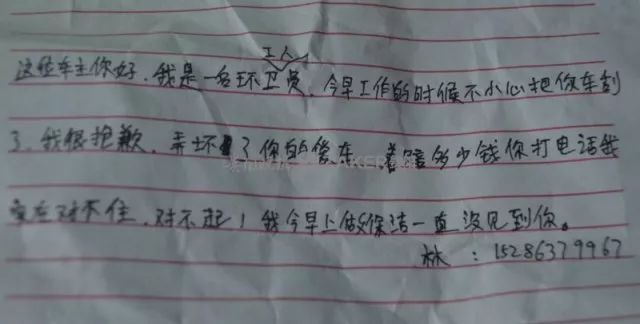 工人
这些车主你好，我是一名环卫员，今早工作的时候不小心把你车刮
了，我很抱歉，弄坏了你的爱车，善赔多少钱你打电话我
实在对不住，对不起！我今早上做保洁一直没见到你。
林：15286379967